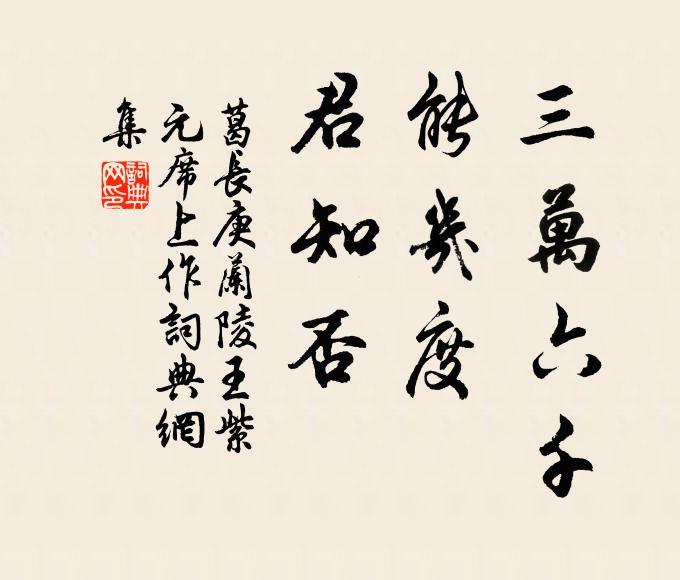 三萬六千
能幾度
君知否
葛長庚蘭陵王紫
元席上作詞典網
集
詞典
网印